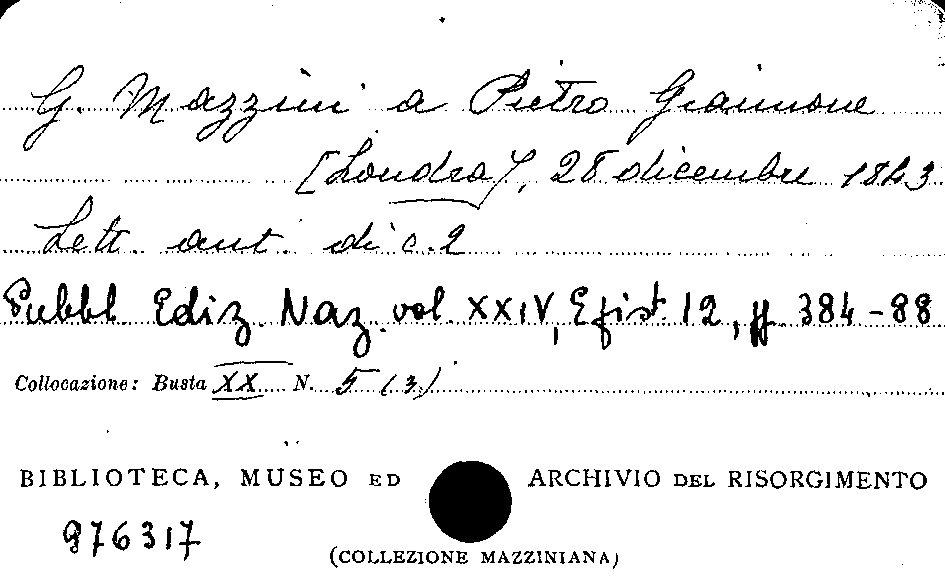 G. Mazzini a Pietro Giannone
[Londra], 28 dicembre 1843
Lett. aut. di c. 2
Pubbl. Ediz. Naz. vol. XXIV, Epist. 12, pp. 384-88
Collocazione: Busta XX N. 5 (3)
BIBLIOTECA, MUSEO ED ARCHIVIO DEL RISORGIMENTO
976317
(COLLEZIONE MAZZINIANA)